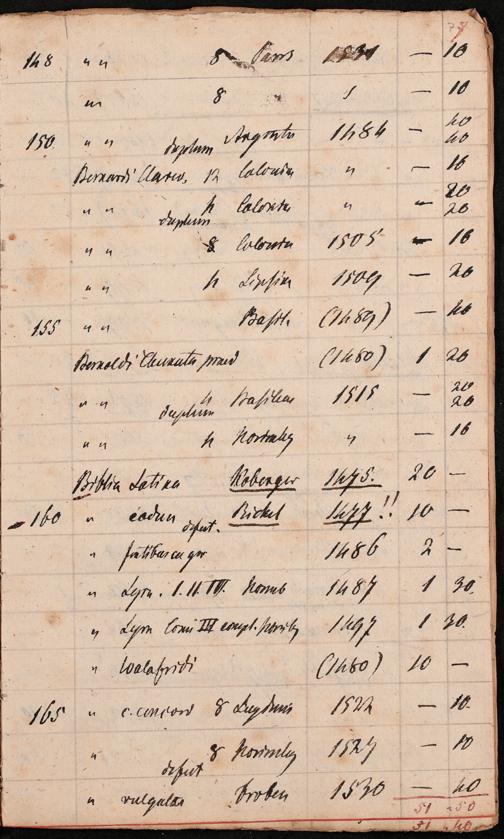 148 " " 8 Paris — 10
" 8 — 10
150 " " duplum Argent 1484 — 40 40
Bernardi Clarev. Colonia " — 16
" " duplum 4 Colonia " — 20 20
" " 8 Colonia 1505 — 16
" " 4 Lipsiae 1509 — 20
155 " " Basil. (1489) — 40
(1480) 1 20
" " duplum 4 Basileae 1515 — 20 20
" " 4 Norimbg " — 16
Biblia Latina Koberger 1475. 20 —
160 " eadem defect. Richel 1477 !! 10 —
" fontibus ex gr 1486 2 —
" Lyra. I. II. III. Norimb 1487 1 30.
" Lyra Tomi III compl. Noribg 1497 1 30.
" Walafridi (1480) 10 —
165 " c. concord 8 Lugduni 1522 — 10.
" defect 8 Norimbg 1527 — 10
" vulgata Froben 1530 — 40
51 50
51 40